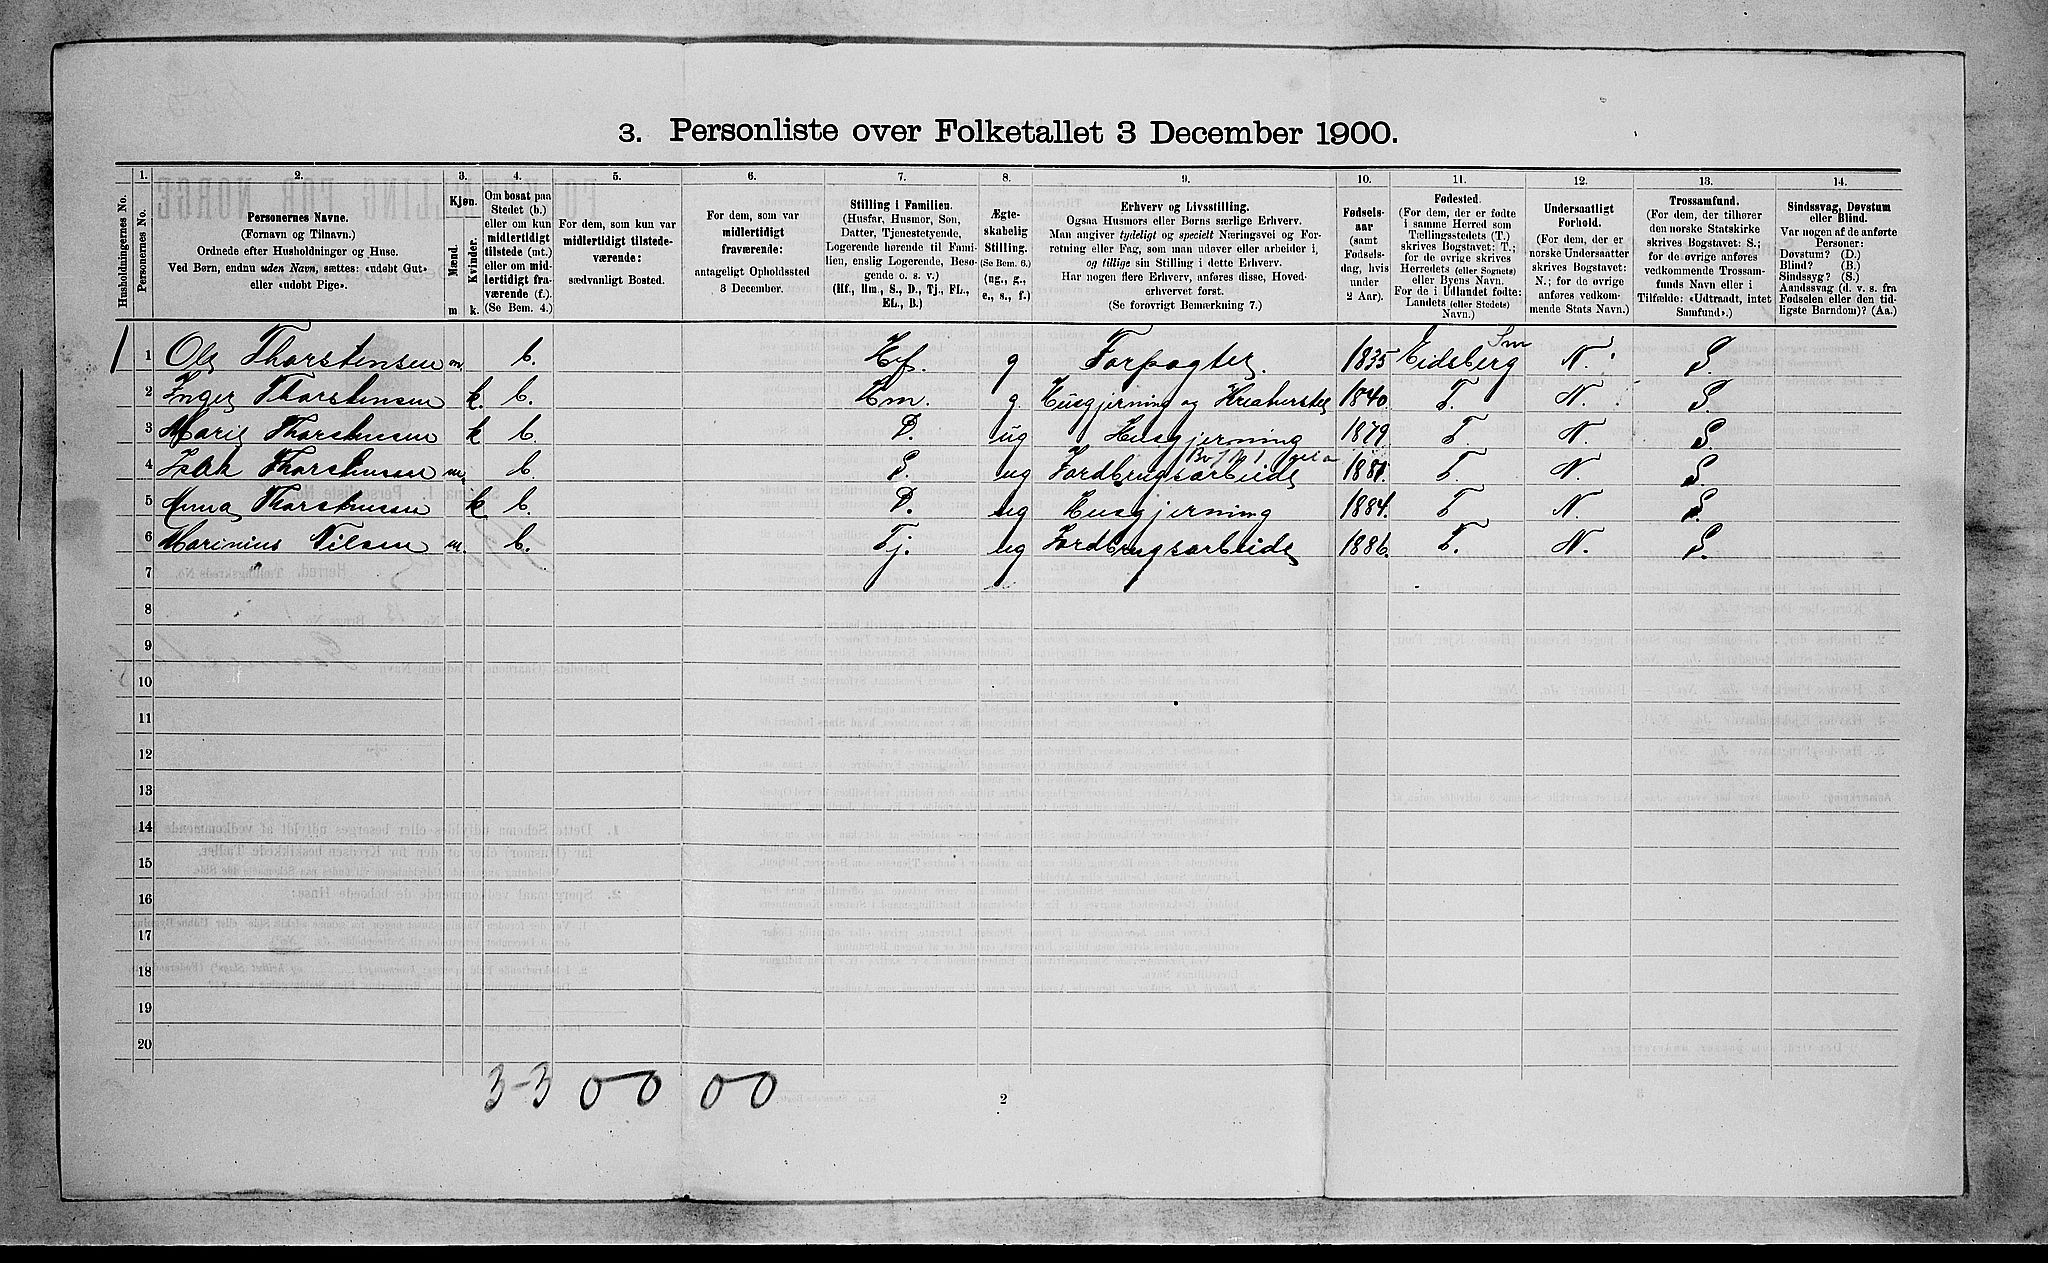 3. Personliste over Folketallet 3 December 1900.
1. 2. 3. 4. 5. 6. 7. 8. 9. 10. 11. 12. 13. 14.
Husholdningernes No.
Personernes No.
Personernes Navne.
(Fornavn og Tilnavn.)
Ordnede efter Husholdninger og Huse.
Ved Børn, endnu uden Navn, sættes: «udøbt Gut»
eller «udøbt Pige».
Kjøn.
Mænd.
Kvinder.
m. k.
Om bosat paa
Stedet (b.)
eller om kun
midlertidigt
tilstede (mt.)
eller om mid-
lertidigt fra-
værende (f.).
(Se Bem. 4.)
For dem, som kun var
midlertidigt tilstede-
værende:
sædvanligt Bosted.
For dem, som var
midlertidigt
fraværende:
antageligt Opholdssted
3 December.
Stilling i Familien.
(Husfar, Husmor, Søn,
Datter, Tjenestetyende,
Logerende hørende til Fami-
lien, enslig Logerende, Besø-
gende o. s. v.)
(Hf., Hm., S., D., Tj., FL.,
EL., B.)
Ægte-
skabelig
Stilling.
(Se Bem. 6.)
(ug., g.,
e., s., f.)
Erhverv og Livsstilling.
Ogsaa Husmors eller Børns særlige Erhverv.
Man angiver tydeligt og specielt Næringsvei og For-
retning eller Fag, som man udøver eller arbeider i,
og tillige sin Stilling i dette Erhverv.
Har nogen flere Erhverv, anføres disse, Hoved-
erhvervet først.
(Se forøvrigt Bemærkning 7.)
Fødsels-
aar
(samt
Fødsels-
dag, hvis
under
2 Aar).
Fødested.
(For dem, der er fødte
i samme Herred som
Tællingsstedets (T.)
skrives Bogstavet: T.;
for de øvrige skrives
Herredets (eller Sognets)
eller Byens Navn.
For de i Udlandet fødte:
Landets (eller Stedets)
Navn.)
Undersaatligt
Forhold.
(For dem, der er
norske Undersaatter
skrives Bogstavet:
N.; for de øvrige
anføres vedkom-
mende Stats Navn.)
Trossamfund.
(For dem, der tilhører
den norske Statskirke
skrives Bogstavet: S.;
for de øvrige anføres
vedkommende Trossam-
funds Navn eller i
Tilfælde: «Udtraadt, intet
Samfund».)
Sindssvag, Døvstum
eller Blind.
Var nogen af de anførte
Personer:
Døvstum? (D.)
Blind? (B.)
Sindssyg? (S.)
Aandssvag (d. v. s. fra
Fødselen eller den tid-
ligste Barndom)? (Aa.)
1 1 Ole Thorstensen m. b. Hf. g Forpagter. 1835 Eidsberg Sm N. S.
2 Inger Thorstensen k. b. Hm. g Husgjerning og Kreaturstel 1840. T. N. S.
3 Marie Thorstensen k b. D. ug Husgjerning 1879. T. N. S.
4 Isak Thorstensen m. b. S. ug Jordbrugsarbeide 1881. T. N. S.
5 Anna Thorstensen k b. D. ug Husgjerning 1884. T N. S.
6 Marinius Nilsen m. b. Tj. ug Jordbrugsarbeide 1886. T. N. S.
7
8
9
10
11
12
13
14
15
16
17
18
19
20
3-3 0 0 0 0
2